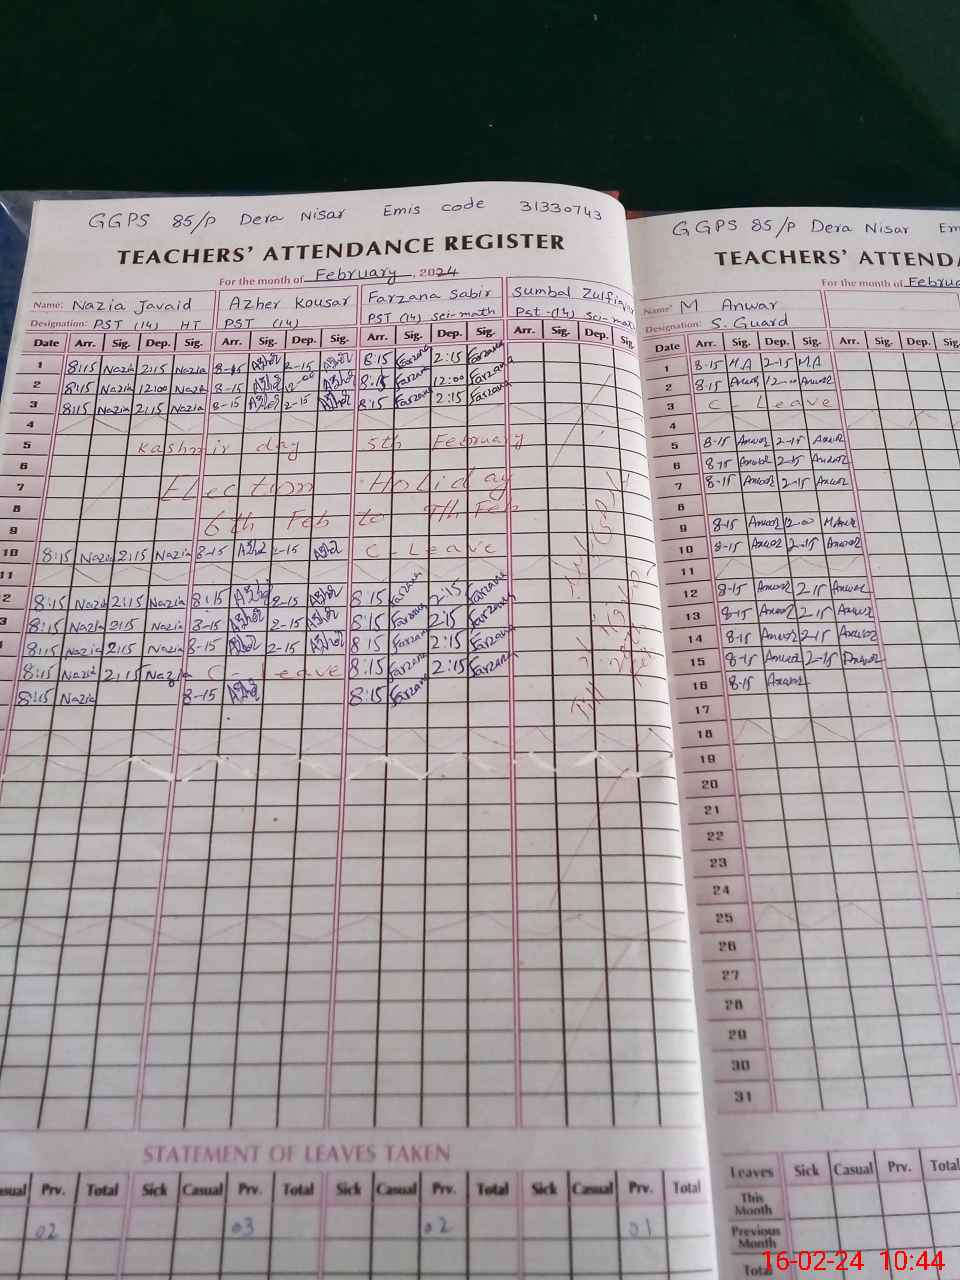 GGPS 85/P Dera Nisar Emis code 31330743
TEACHERS' ATTENDANCE REGISTER
For the month of February, 2024
Name: Nazia Javaid Azher Kousar Farzana Sabir Sumbal
Designation: PST (14) HT PST (14) PST (14) sci-math Pst-(14)
Date Arr. Sig. Dep. Sig. Arr. Sig. Dep. Sig. Arr. Sig. Dep. Sig. Arr. Sig. Dep. Sig.
1 8:15 Nazia 2:15 Nazia 8-15 Azher 2-15 Azher 8:15 Farzana 2:15 Farzana
2 8:15 Nazia 12:00 Nazia 8-15 Azher 12-00 Azher 8:15 Farzana 12:00 Farzana
3 8:15 Nazia 2:15 Nazia 8-15 Azher 2-15 Azher 8:15 Farzana 2:15 Farzana
4
5 Kashmir day 5th February
6
7 Election Holiday
8
9 6th Feb to 9th Feb
10 8:15 Nazia 2:15 Nazia 8-15 Azher 2-15 Azher C-Leave
11
2 8:15 Nazia 2:15 Nazia 8:15 Azher 2-15 Azher 8:15 Farzana 2:15 Farzana
3 8:15 Nazia 2:15 Nazia 8-15 Azher 2-15 Azher 8:15 Farzana 2:15 Farzana
4 8:15 Nazia 2:15 Nazia 8-15 Azher 2-15 Azher 8:15 Farzana 2:15 Farzana
8:15 Nazia 2:15 Nazia C-Leave 8:15 Farzana 2:15 Farzana
8:15 Nazia 8-15 Azher 8:15 Farzana
STATEMENT OF LEAVES TAKEN
Casual Prv. Total Sick Casual Prv. Total Sick Casual Prv. Total Sick Casual Prv. Total
02 03 02 01
GGPS 85/P Dera Nisar Em
TEACHERS' ATTENDA
For the month of Februa
Name: M Anwar
Designation: S. Guard
Date Arr. Sig. Dep. Sig. Arr. Sig. Dep. Sig.
1 8-15 M.A 2-15 M.A
2 8-15 Anwar 12-00 Anwar
3 C-Leave
4
5 8-15 Anwar 2-15 Anwar
6 8-15 Anwar 2-15 Anwar
7 8-15 Anwar 2-15 Anwar
8
9 8-15 Anwar 12-00 M Anwar
10 8-15 Anwar 2-15 Anwar
11
12 8-15 Anwar 2-15 Anwar
13 8-15 Anwar 2-15 Anwar
14 8-15 Anwar 2-15 Anwar
15 8-15 Anwar 2-15 Anwar
16 8-15 Anwar
17
18
19
20
21
22
23
24
25
26
27
28
29
30
31
Leaves Sick Casual Prv. Total
This Month
Previous Month
Total
16-02-24 10:44